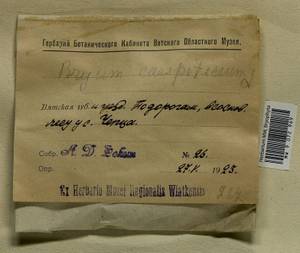 Гербарий Ботанического Кабинета Вятского Областного Музея.
Bryum caespiticium
Вятская губ. и уезд. Подорогам, в сосновом
лесу у с. Чепца.
Собр. А. Д. № 26.
Опр. 27.V. 1923.
Ex Herbario Musei Regionalis Wiatkensis